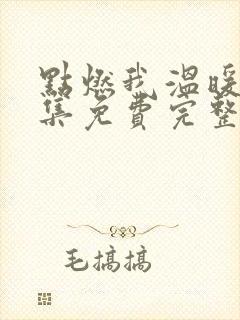 點燃我溫暖
集免費完整
毛搞搞